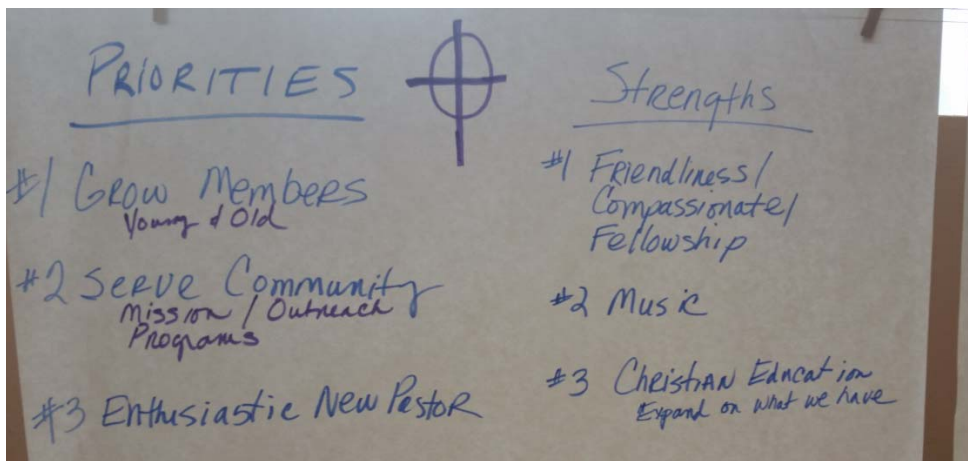 PRIORITIES
#1 GROW MEMBERS
Young & Old
#2 SERVE Community
Mission / Outreach
Programs
#3 Enthusiastic New Pastor
Strengths
#1 Friendliness/
Compassionate/
Fellowship
#2 Music
#3 Christian Education
Expand on what we have